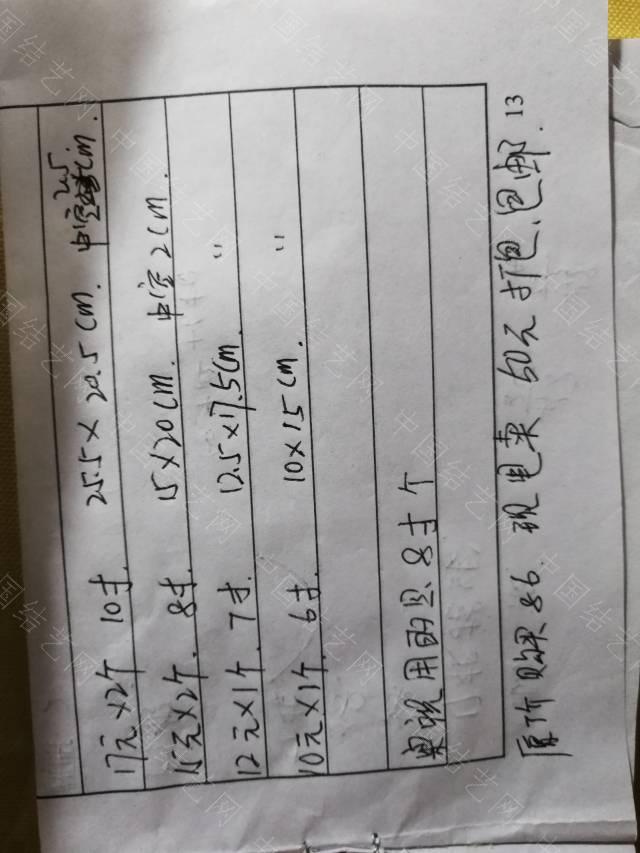 17元×2个 10寸. 25.5×20.5cm. 中空2.5cm.
15元×2个. 8寸. 15×20cm. 中空2cm.
12元×1个. 7寸. 12.5×17.5cm. 〃
10元×1个. 6寸. 10×15cm. 〃
用的是8寸个
原价购买86. 现 卖 60元打包.包邮.
13
中国结艺网